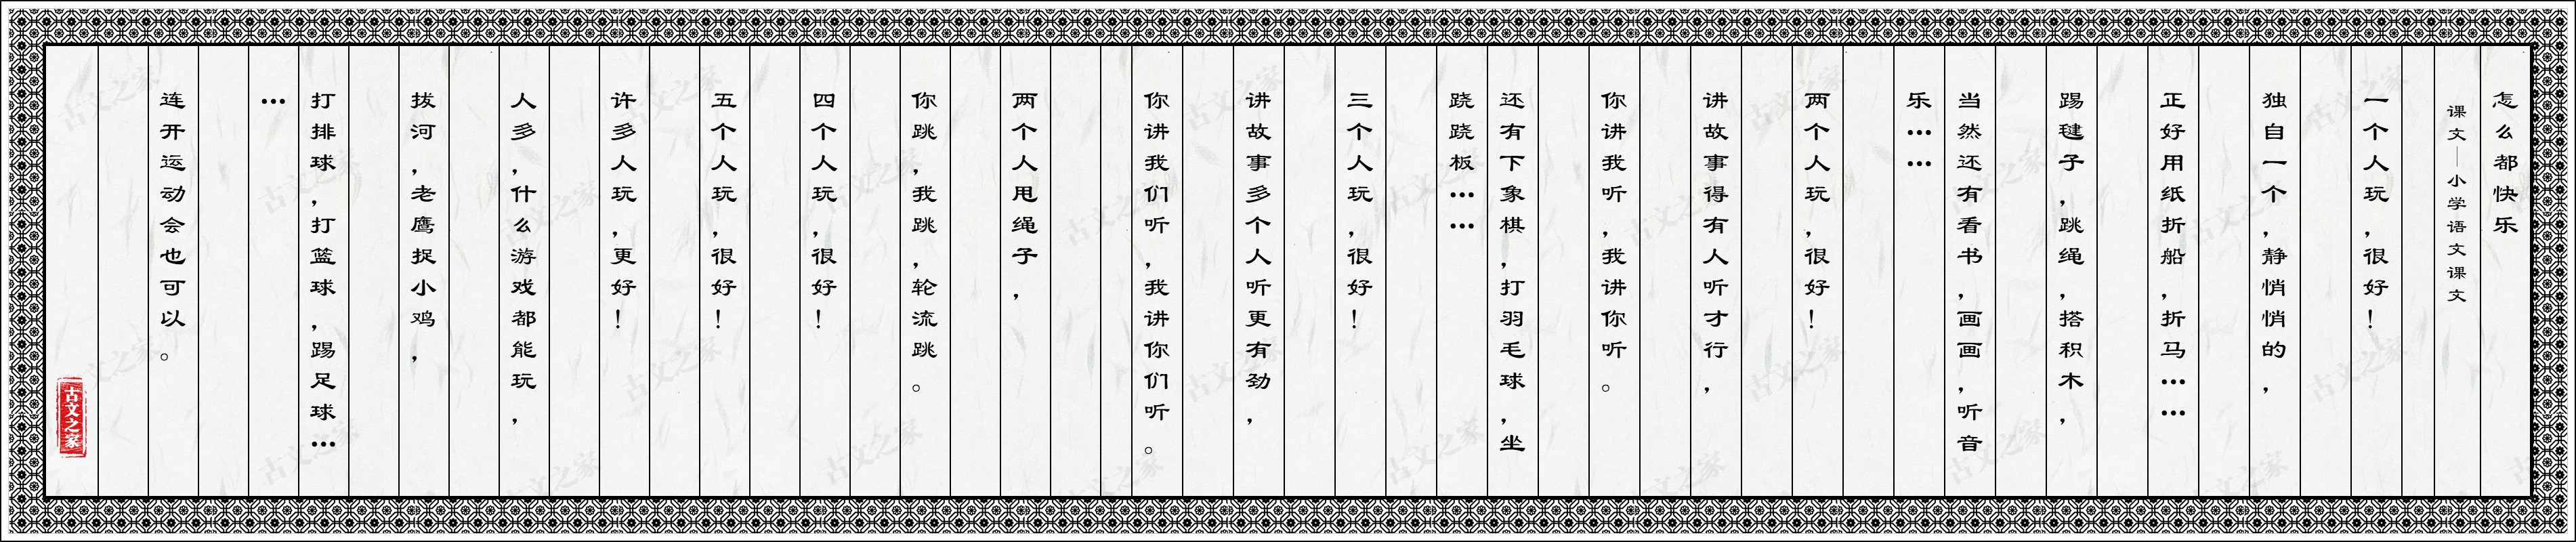 怎么都快乐
课文—小学语文课文
一个人玩，很好！
独自一个，静悄悄的，
正好用纸折船，折马……
踢毽子，跳绳，搭积木，
当然还有看书，画画，听音
乐……
两个人玩，很好！
讲故事得有人听才行，
你讲我听，我讲你听。
还有下象棋，打羽毛球，坐
跷跷板……
三个人玩，很好！
讲故事多个人听更有劲，
你讲我们听，我讲你们听。
两个人甩绳子，
你跳，我跳，轮流跳。
四个人玩，很好！
五个人玩，很好！
许多人玩，更好！
人多，什么游戏都能玩，
拔河，老鹰捉小鸡，
打排球，打篮球，踢足球…
…
连开运动会也可以。
古文之家